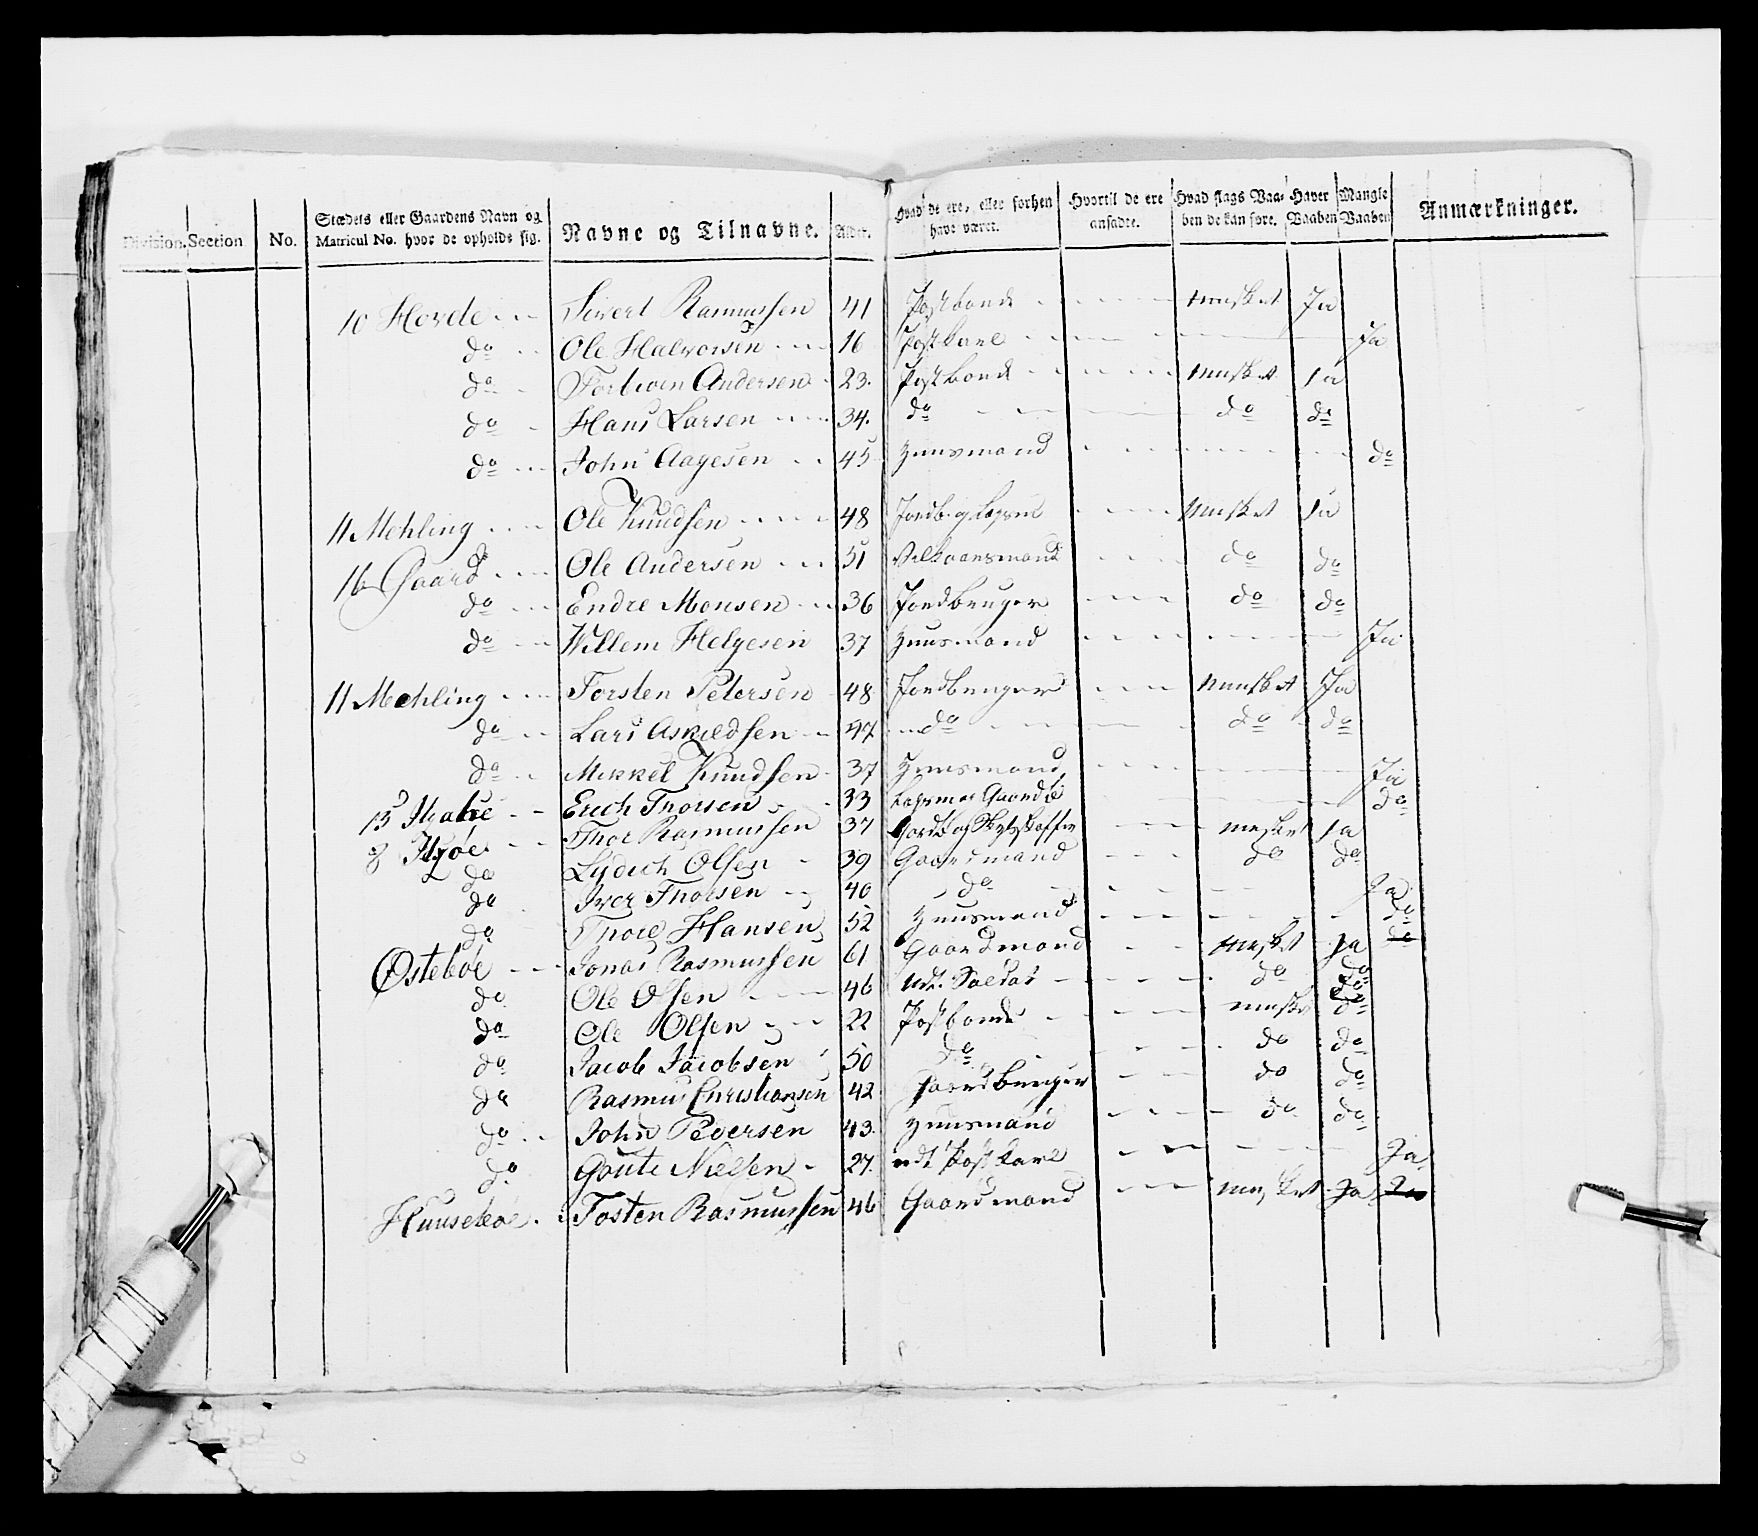 Division. Section No. Stædets eller Gaardens Navn og Matricul No. hvor de opholde sig. Navne og Tilnavne. Alder. Hvad de ere, eller forhen have været. Hvortil de ere ansadte. Hvad slags Vaaben de kan føre. Haver Vaaben Mangle Vaaben Anmærkninger.
10 Hovde Sivert Rasmussen 41 Postbonde Musket Ja
do Ole Halvorsen 16 Postkarl Ja
do Torbiorn Andersen 23. Postbonde Musket Ja
do Hans Larsen 34. do do do
do John Aagesen 45 Huusmand do
11 Mehling Ole Knudsen 48 Musket Ja
16 Gaard Ole Andersen 51 do do
do Endre Monsen 36 Jordbruger do do
do Willem Helgesen 37 Huusmand Ja
11 Mehling Torsten Petersen 48 Jordbruger Musket Ja
do Lars Askildsen 47 do do do
do Mikkel Knudsen 37 Huusmand Ja
13 Erich Thorsen 33 do
8 Thor Rasmussen 37 Musket Ja
do Lydich Olsen 39 Gaardmand do do
do Iver Thorsen 40 do Ja
do Thore Hansen 52 Huusmand do
Østebøe Jonas Rasmussen 61 Gaardmand Musket Ja do
do Ole Olsen 46 Udt. Soldat do do
do Ole Olsen 22 Postbonde Musket do
do Jacob Jacobsen 50 do do do
do Rasmus Christiansen 42 Jordbruger do do
do John Pedersen 43. Huusmand do do
do Goute Nielsen 27. udt Postkarl Ja
Huusebøe Tosten Rasmussen 46 Gaardmand Musket Ja Ja